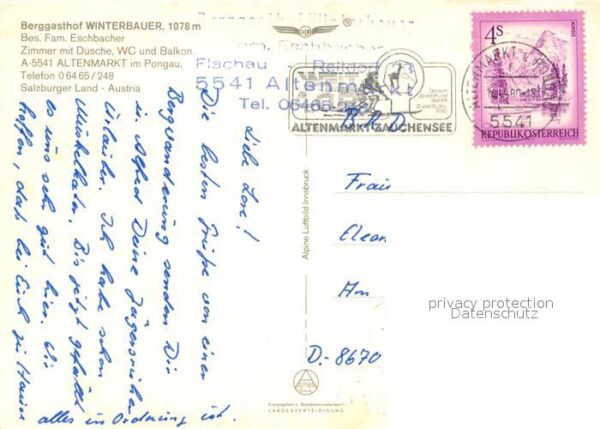 Berggasthof WINTERBAUER, 1076 m
Bes. Fam. Eschbacher
Zimmer mit Dusche, WC und Balkon.
A-5541 ALTENMARKT im Pongau,
Telefon 0 64 65 / 248
Salzburger Land - Austria
Berggasthof Winterbauer
Fam. Eschbacher
Flachau - Reitdorf
5541 Altenmarkt
Tel. 06465-
ALTENMARKT-ZAUCHENSEE
4S
REPUBLIK ÖSTERREICH
5541
Liebe Lore!
Die besten Grüße von einer
Bergwanderung senden Dir
Alfred Deine
Urlauber. Ich habe schon
Muskelkater. Bis jetzt gefällt
es uns sehr gut hier. Wir
hoffen, daß bei Euch zu Hause
alles in Ordnung ist.
B.R.D.
Alpine Luftbild Innsbruck
D.-8670
privacy protection
Datenschutz
LANDESVERTEIDIGUNG